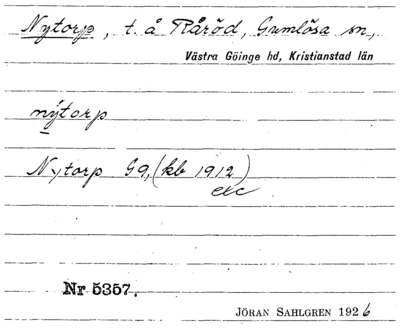 Nytorp, t. å Råröd, Gumlösa sn,
Västra Göinge hd, Kristianstad län
nýtorp
Nytorp G9, (kb 1912)
etc
Nr 5357.
JÖRAN SAHLGREN 1926